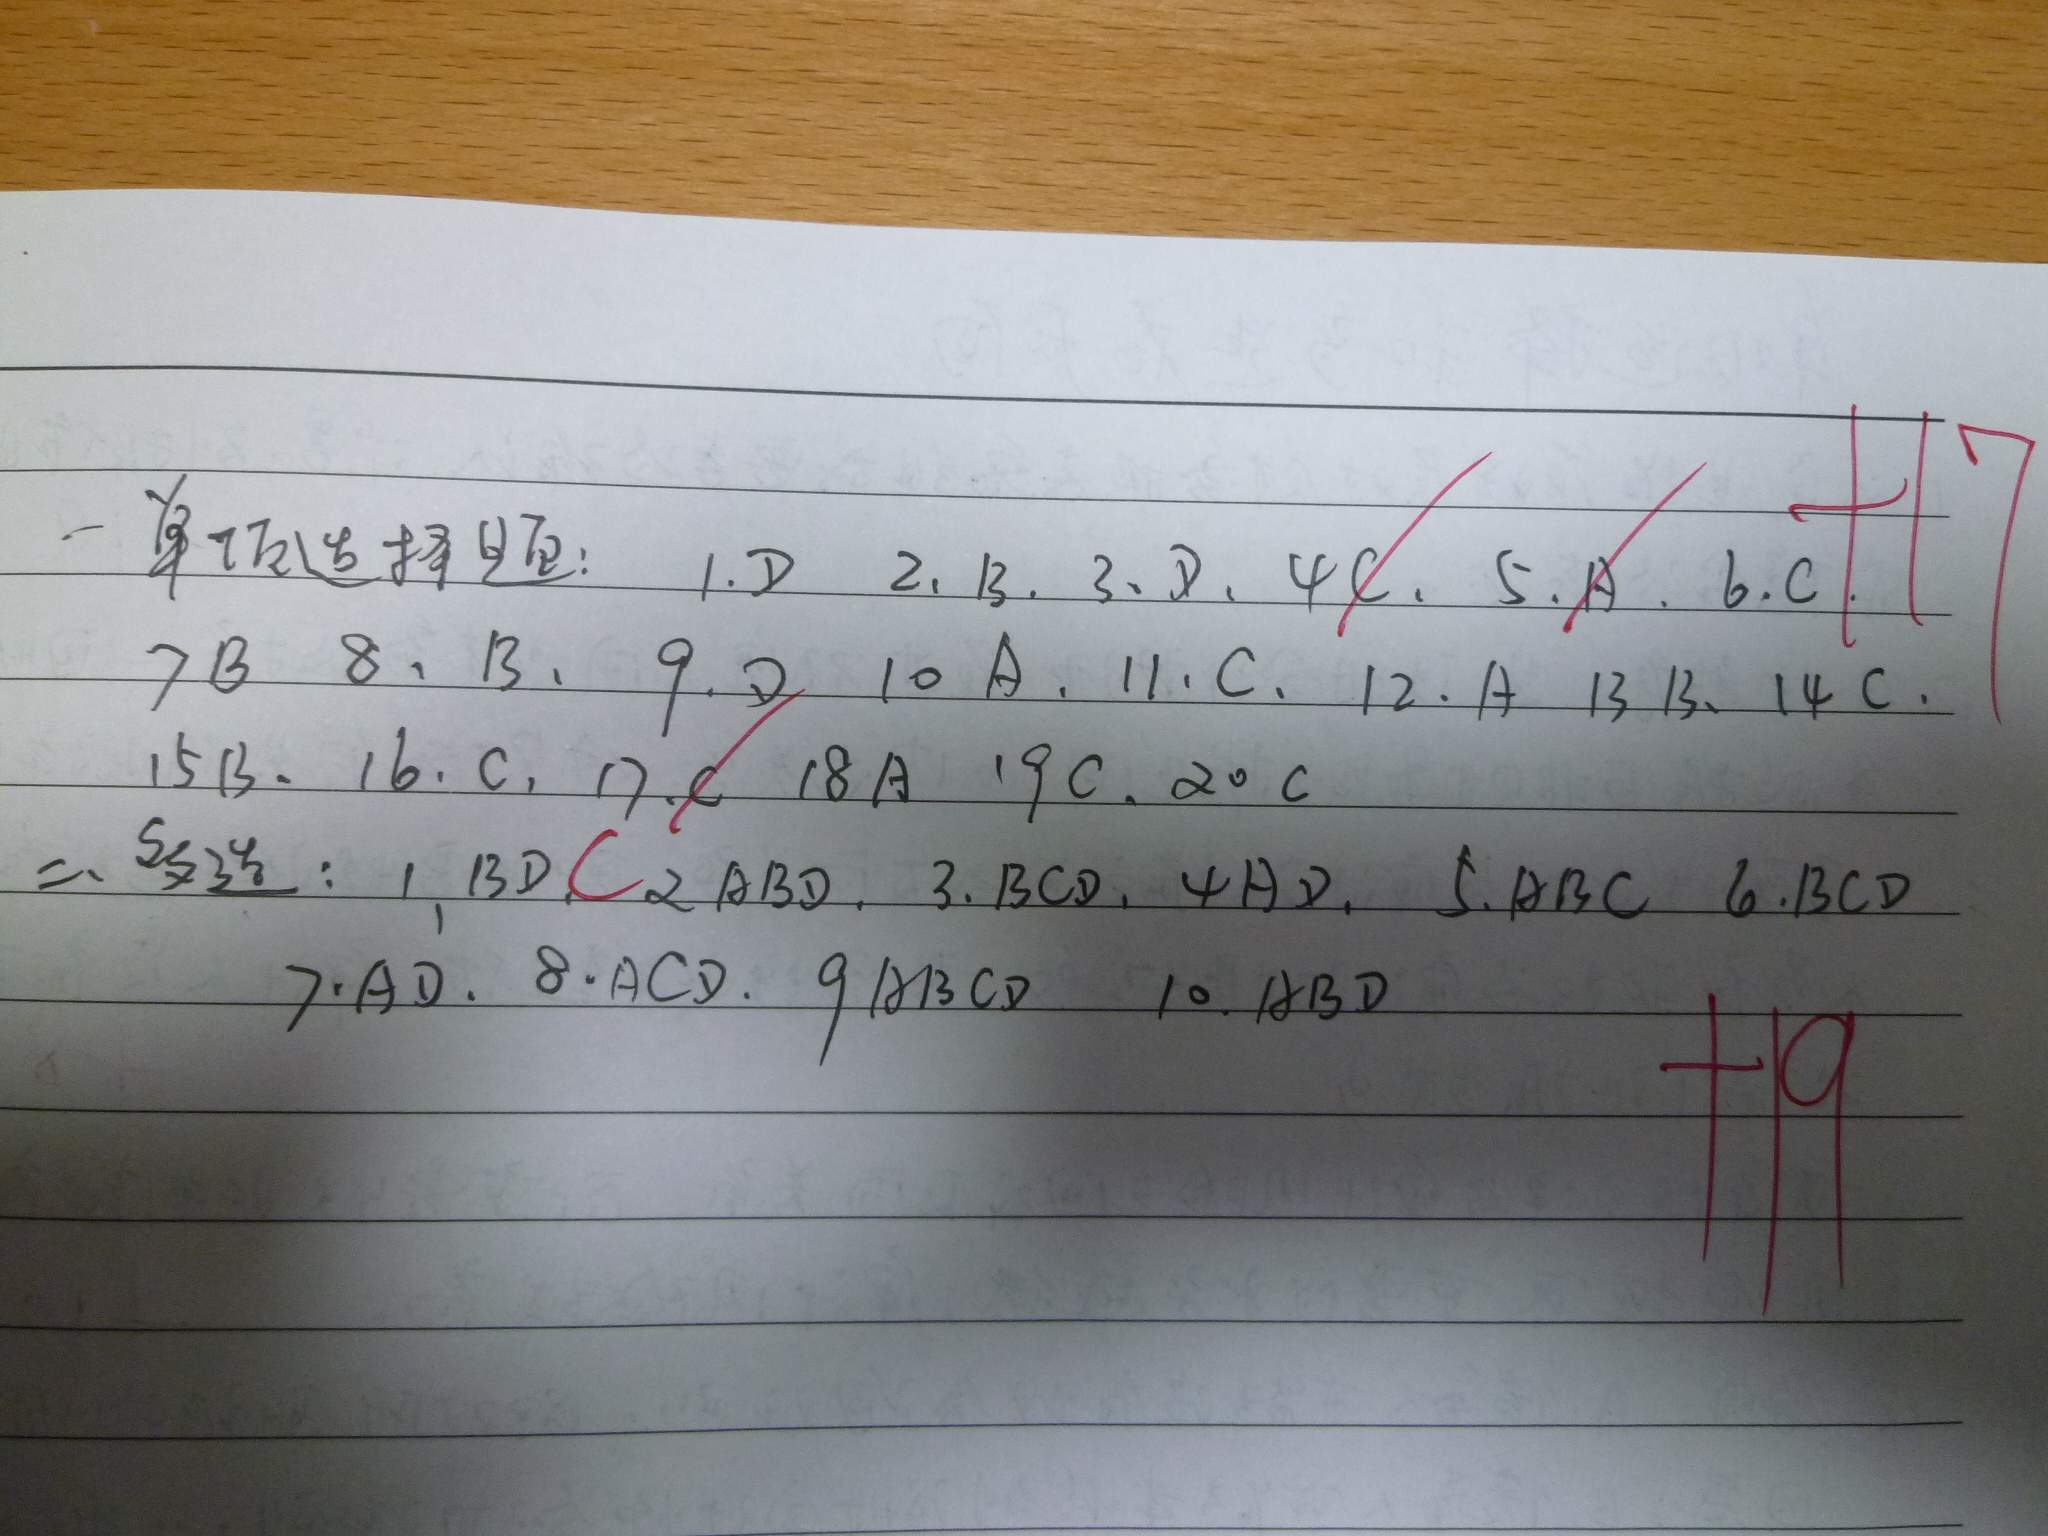 +17
一 单项选择题: 1.D 2、B. 3、D. 4C. 5.A. 6.C.
7B 8、B、 9.D 10 A. 11.C. 12.A 13B、 14C.
15B、 16.C. 17.C 18A 19C. 20C
二、多选: 1、BD.C 2ABD. 3.BCD. 4AD. 5.ABC 6.BCD
7.AD. 8.ACD. 9ABCD 10.ABD
+19